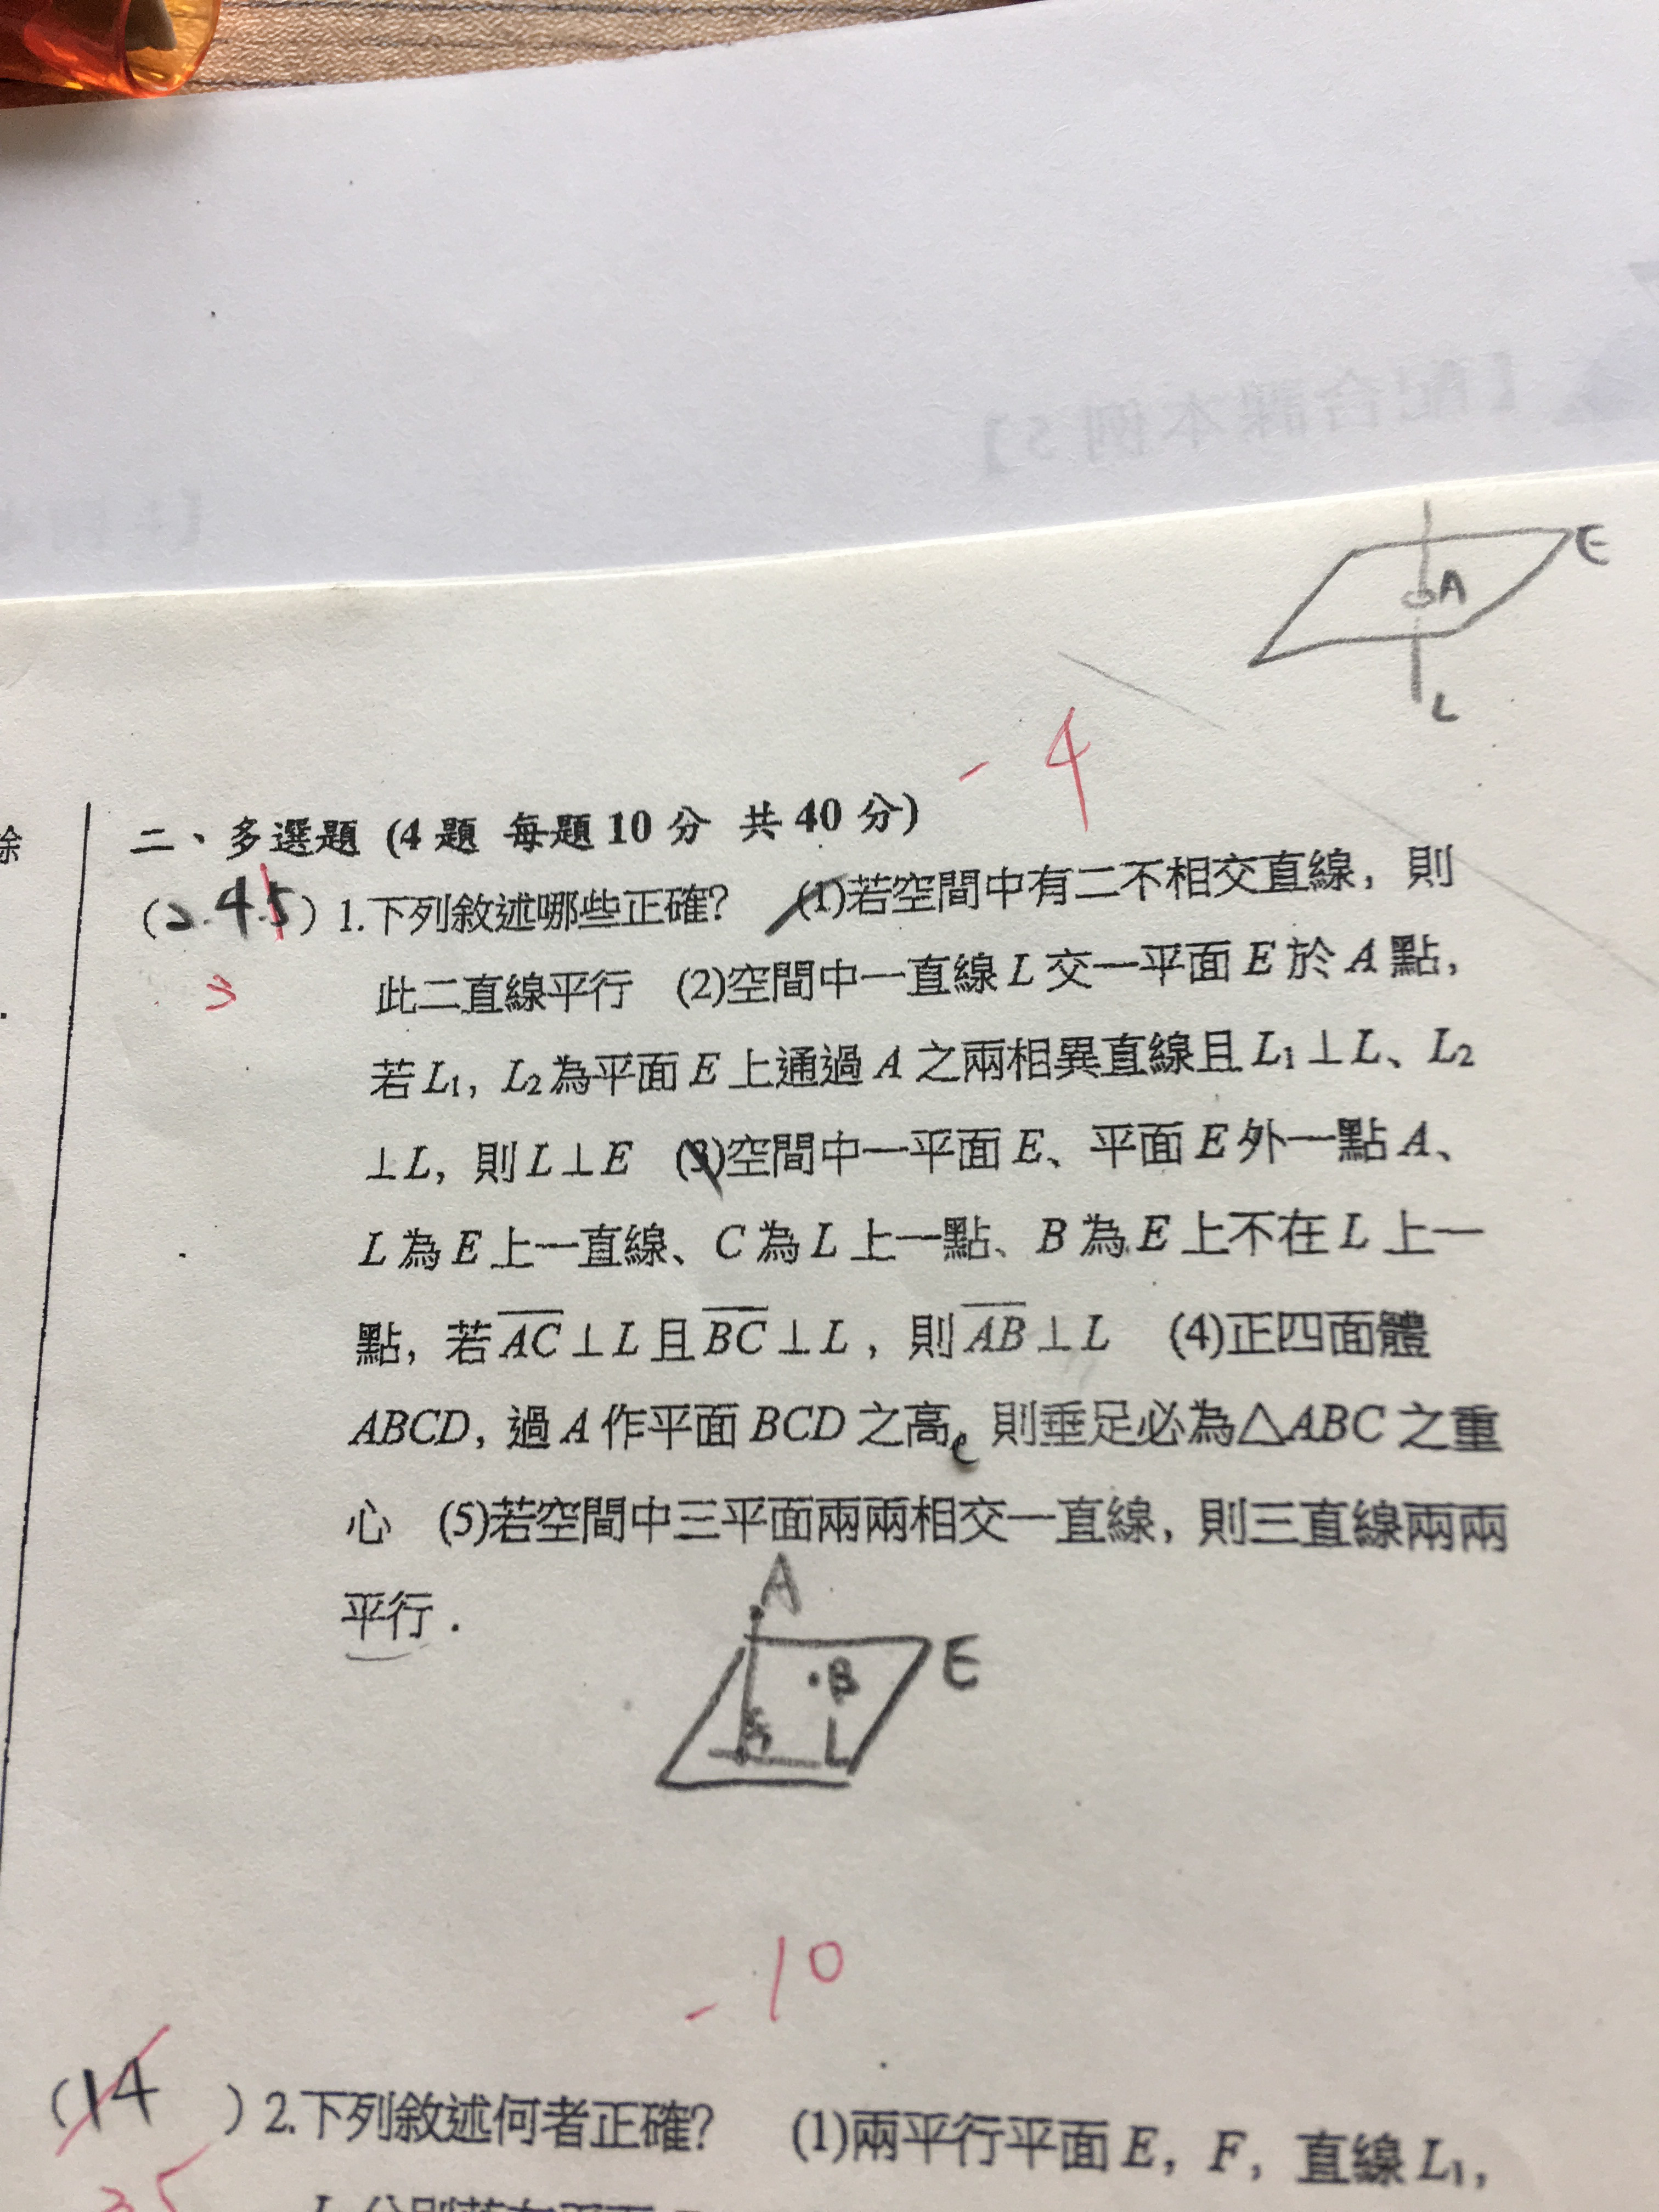 【配合課本例 5】
E
A
L
- 4
除
二、多選題 (4 題 每題 10 分 共 40 分)
(2.4.5) 1.下列敘述哪些正確? (1)若空間中有二不相交直線，則
3
此二直線平行 (2)空間中一直線 L 交一平面 E 於 A 點，
若 L₁，L₂為平面 E 上通過 A 之兩相異直線且 L₁⊥L、L₂
⊥L，則 L⊥E (3)空間中一平面 E、平面 E 外一點 A、
L 為 E 上一直線、C 為 L 上一點、B 為 E 上不在 L 上一
點，若 A̅C̅⊥L 且 B̅C̅⊥L，則 A̅B̅⊥L (4)正四面體
ABCD，過 A 作平面 BCD 之高，則垂足必為△ABC 之重
心 (5)若空間中三平面兩兩相交一直線，則三直線兩兩
平行．
A
E
B
L
- 10
(14) 2.下列敘述何者正確? (1)兩平行平面 E，F，直線 L₁，
35